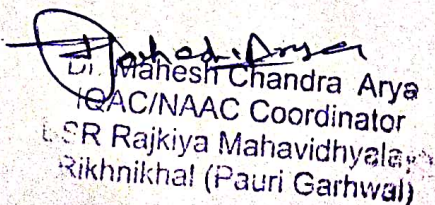 Dr. Mahesh Chandra Arya
IQAC/NAAC Coordinator
Rajkiya Mahavidhyalaya
Rikhnikhal (Pauri Garhwal)